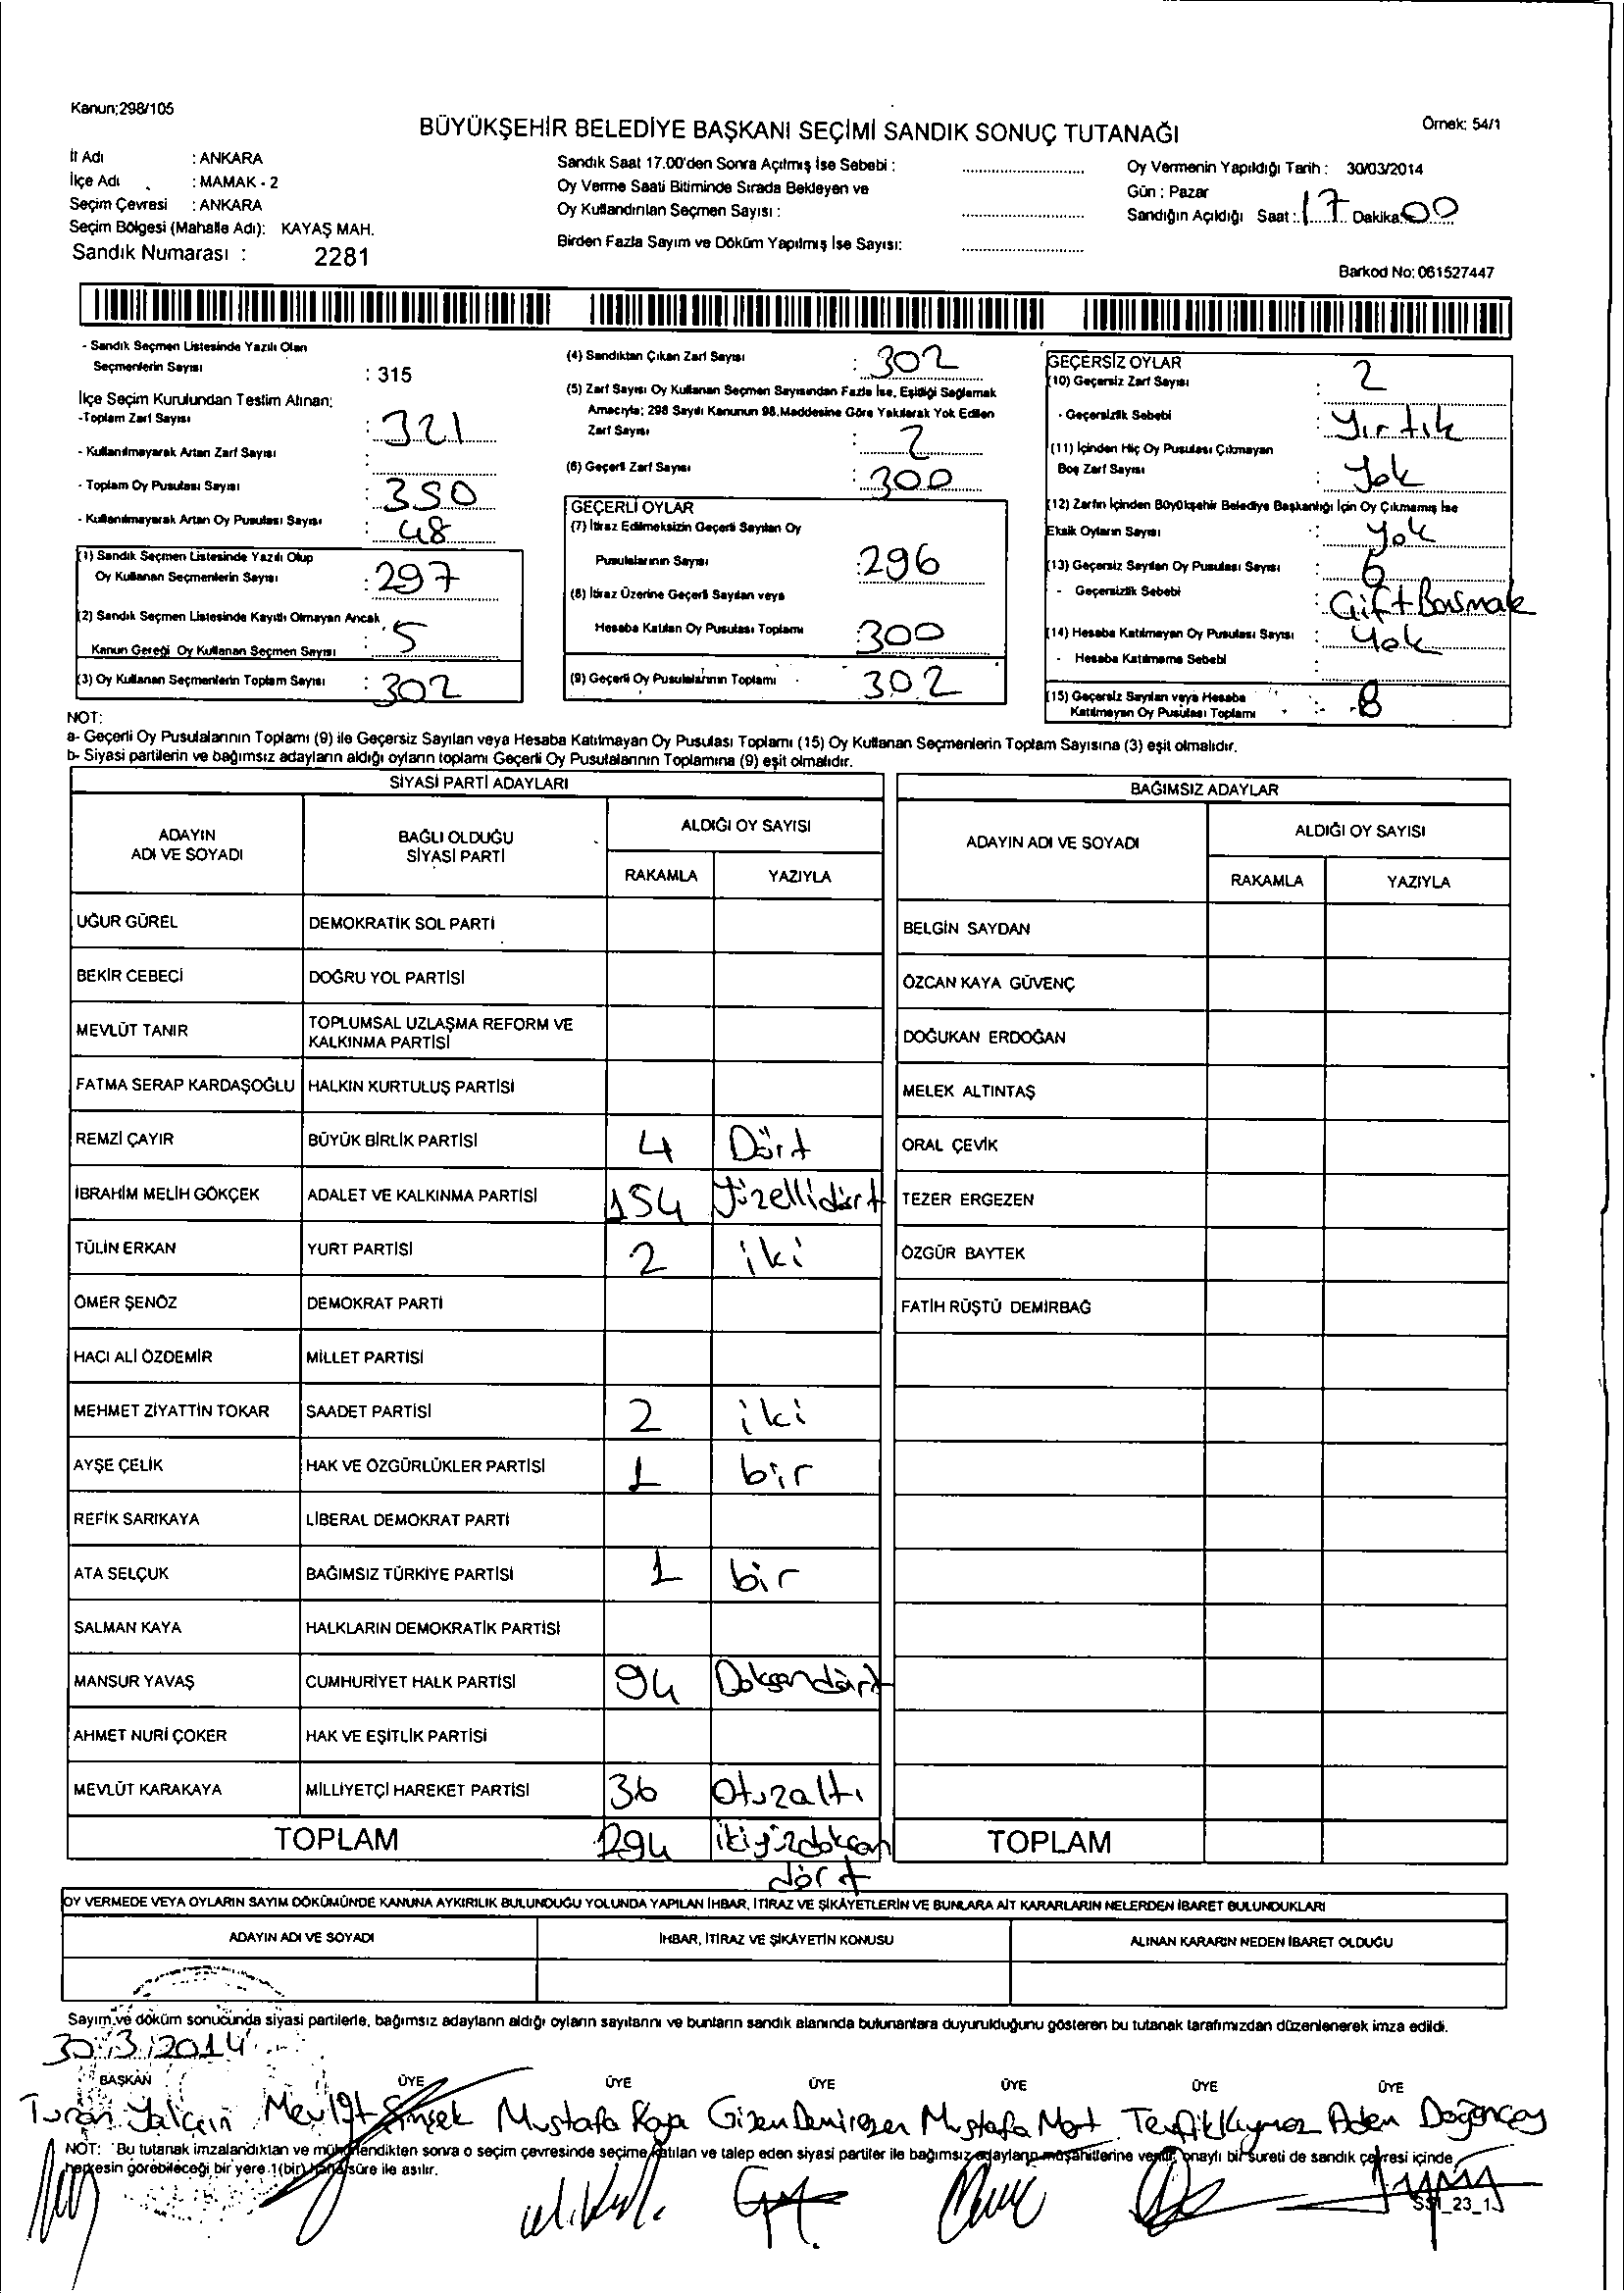 Kanun;298/105
Örnek: 54/1
BÜYÜKŞEHİR BELEDİYE BAŞKANI SEÇİMİ SANDIK SONUÇ TUTANAĞI
İl Adı : ANKARA
İlçe Adı : MAMAK - 2
Seçim Çevresi : ANKARA
Seçim Bölgesi (Mahalle Adı): KAYAŞ MAH.
Sandık Numarası : 2281
Sandık Saat 17.00'den Sonra Açılmış İse Sebebi :
Oy Verme Saati Bitiminde Sırada Bekleyen ve
Oy Kullandırılan Seçmen Sayısı :
Birden Fazla Sayım ve Döküm Yapılmış İse Sayısı:
Oy Vermenin Yapıldığı Tarih : 30/03/2014
Gün : Pazar
Sandığın Açıldığı Saat : 17 Dakika 00
Barkod No: 061527447
- Sandık Seçmen Listesinde Yazılı Olan
Seçmenlerin Sayısı : 315
İlçe Seçim Kurulundan Teslim Alınan:
-Toplam Zarf Sayısı : 321
- Kullanılmayarak Artan Zarf Sayısı :
- Toplam Oy Pusulası Sayısı : 350
- Kullanılmayarak Artan Oy Pusulası Sayısı : 48
(1) Sandık Seçmen Listesinde Yazılı Olup
Oy Kullanan Seçmenlerin Sayısı : 297
(2) Sandık Seçmen Listesinde Kayıtlı Olmayan Ancak
Kanun Gereği Oy Kullanan Seçmen Sayısı : 5
(3) Oy Kullanan Seçmenlerin Toplam Sayısı : 302
(4) Sandıktan Çıkan Zarf Sayısı : 302
(5) Zarf Sayısı Oy Kullanan Seçmen Sayısından Fazla İse, Eşitliği Sağlamak
Amacıyla; 298 Sayılı Kanunun 98.Maddesine Göre Yakılarak Yok Edilen
Zarf Sayısı : 2
(6) Geçerli Zarf Sayısı : 300
GEÇERLİ OYLAR
(7) İtiraz Edilmeksizin Geçerli Sayılan Oy
Pusulalarının Sayısı : 296
(8) İtiraz Üzerine Geçerli Sayılan veya
Hesaba Katılan Oy Pusulası Toplamı : 300
(9) Geçerli Oy Pusulalarının Toplamı : 302
GEÇERSİZ OYLAR
(10) Geçersiz Zarf Sayısı : 2
- Geçersizlik Sebebi : Yırtık
(11) İçinden Hiç Oy Pusulası Çıkmayan
Boş Zarf Sayısı : Yok
(12) Zarfın İçinden Büyükşehir Belediye Başkanlığı İçin Oy Çıkmamış İse
Eksik Oyların Sayısı : Yok
(13) Geçersiz Sayılan Oy Pusulası Sayısı : 6
- Geçersizlik Sebebi : Çift Basmak
(14) Hesaba Katılmayan Oy Pusulası Sayısı : Yok
- Hesaba Katılmama Sebebi :
(15) Geçersiz Sayılan veya Hesaba
Katılmayan Oy Pusulası Toplamı : 8
NOT:
a- Geçerli Oy Pusulalarının Toplamı (9) ile Geçersiz Sayılan veya Hesaba Katılmayan Oy Pusulası Toplamı (15) Oy Kullanan Seçmenlerin Toplam Sayısına (3) eşit olmalıdır.
b- Siyasi partilerin ve bağımsız adayların aldığı oyların toplamı Geçerli Oy Pusulalarının Toplamına (9) eşit olmalıdır.
SİYASİ PARTİ ADAYLARI
ADAYIN ADI VE SOYADI BAĞLI OLDUĞU SİYASİ PARTİ ALDIĞI OY SAYISI
RAKAMLA YAZIYLA
UĞUR GÜREL DEMOKRATİK SOL PARTİ
BEKİR CEBECİ DOĞRU YOL PARTİSİ
MEVLÜT TANIR TOPLUMSAL UZLAŞMA REFORM VE KALKINMA PARTİSİ
FATMA SERAP KARDAŞOĞLU HALKIN KURTULUŞ PARTİSİ
REMZİ ÇAYIR BÜYÜK BİRLİK PARTİSİ 4 Dört
İBRAHİM MELİH GÖKÇEK ADALET VE KALKINMA PARTİSİ 154 Yüzellidört
TÜLİN ERKAN YURT PARTİSİ 2 iki
ÖMER ŞENÖZ DEMOKRAT PARTİ
HACI ALİ ÖZDEMİR MİLLET PARTİSİ
MEHMET ZİYATTİN TOKAR SAADET PARTİSİ 2 iki
AYŞE ÇELİK HAK VE ÖZGÜRLÜKLER PARTİSİ 1 bir
REFİK SARIKAYA LİBERAL DEMOKRAT PARTİ
ATA SELÇUK BAĞIMSIZ TÜRKİYE PARTİSİ 1 bir
SALMAN KAYA HALKLARIN DEMOKRATİK PARTİSİ
MANSUR YAVAŞ CUMHURİYET HALK PARTİSİ 94 Doksandört
AHMET NURİ ÇOKER HAK VE EŞİTLİK PARTİSİ
MEVLÜT KARAKAYA MİLLİYETÇİ HAREKET PARTİSİ 36 Otuzaltı
TOPLAM 294 ikiyüzdoksan dört
BAĞIMSIZ ADAYLAR
ADAYIN ADI VE SOYADI ALDIĞI OY SAYISI
RAKAMLA YAZIYLA
BELGİN SAYDAN
ÖZCAN KAYA GÜVENÇ
DOĞUKAN ERDOĞAN
MELEK ALTINTAŞ
ORAL ÇEVİK
TEZER ERGEZEN
ÖZGÜR BAYTEK
FATİH RÜŞTÜ DEMİRBAĞ
TOPLAM
OY VERMEDE VEYA OYLARIN SAYIM DÖKÜMÜNDE KANUNA AYKIRILIK BULUNDUĞU YOLUNDA YAPILAN İHBAR, İTİRAZ VE ŞİKÂYETLERİN VE BUNLARA AİT KARARLARIN NELERDEN İBARET BULUNDUKLARI
ADAYIN ADI VE SOYADI İHBAR, İTİRAZ VE ŞİKÂYETİN KONUSU ALINAN KARARIN NEDEN İBARET OLDUĞU
Sayım ve döküm sonucunda siyasi partilerle, bağımsız adayların aldığı oyların sayılarını ve bunların sandık alanında bulunanlara duyurulduğunu gösteren bu tutanak tarafımızdan düzenlenerek imza edildi.
30/3/2014
BAŞKAN ÜYE ÜYE ÜYE ÜYE ÜYE ÜYE
Turan Yalçın Mevlüt Şimşek Mustafa Kaya Gizem Demirezen Mustafa Mert Tevfik Kıymaz Aden Doğançay
NOT: Bu tutanak imzalandıktan ve mühürlendikten sonra o seçim çevresinde seçime katılan ve talep eden siyasi partiler ile bağımsız adayların müşahitlerine verilir, onaylı bir sureti de sandık çevresi içinde
herkesin görebileceği bir yere 1(bir) hafta süre ile asılır.
SS1_23_1